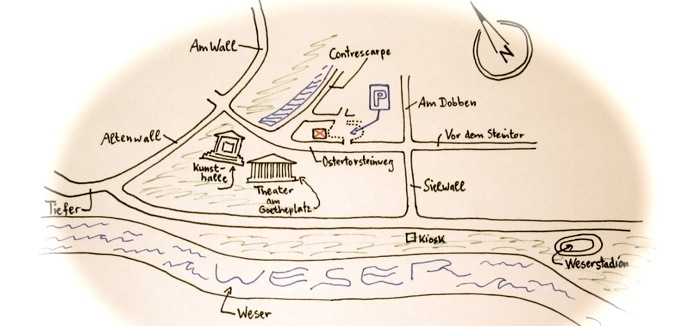 Am Wall
Contrescarpe
N
P
Am Dobben
Altenwall
Vor dem Steintor
Kunst-
halle
Ostertorsteinweg
Theater
am
Goetheplatz
Sielwall
Tiefer
Kiosk
Weserstadion
WESER
Weser